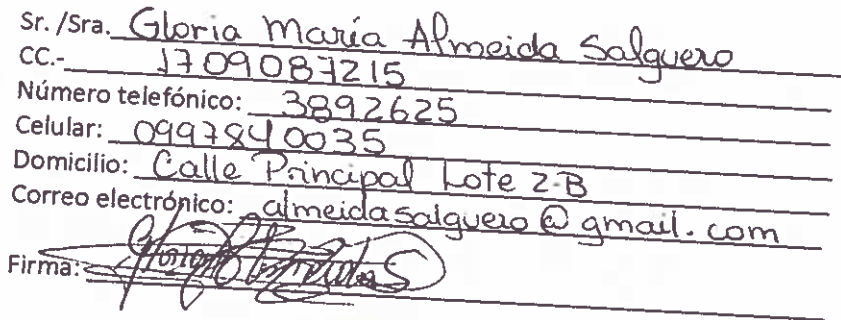 Sr. /Sra. Gloria María Almeida Salguero
CC.- 1709087215
Número telefónico: 3892625
Celular: 0997840035
Domicilio: Calle Principal Lote 2-B
Correo electrónico: almeidasalguero@gmail.com
Firma: